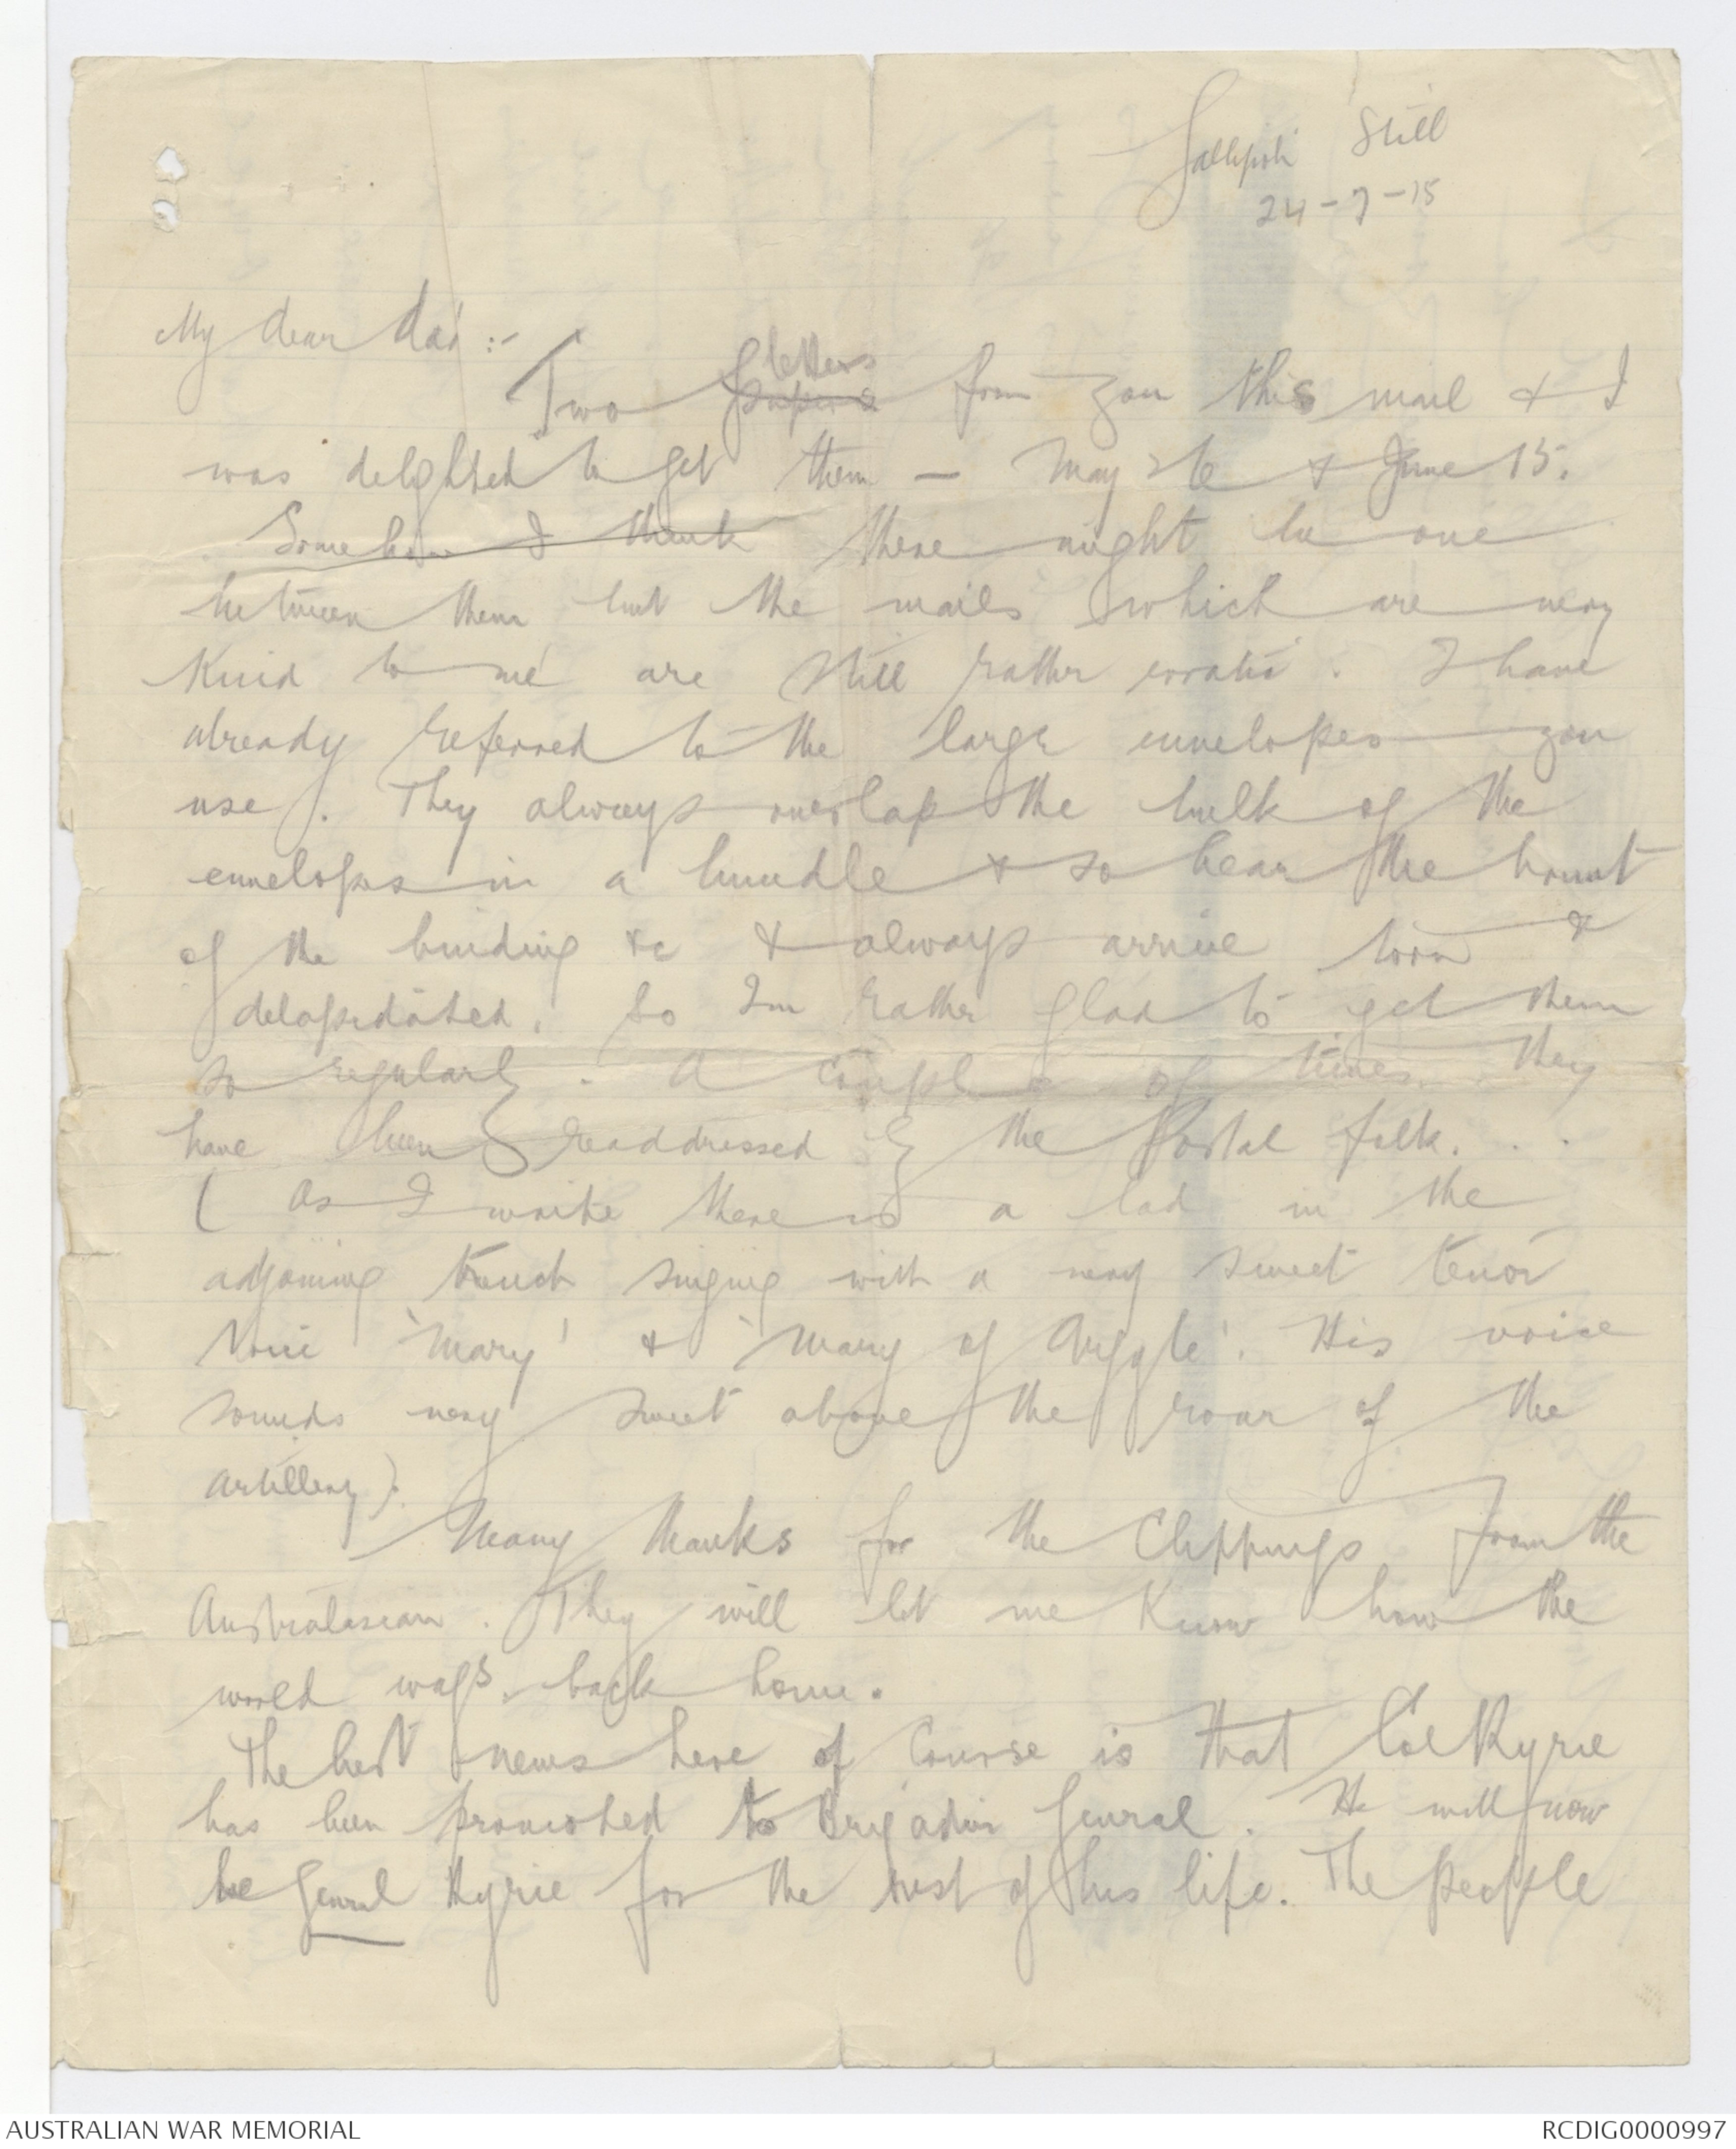 Gallipoli Still
24-7-15
My dear Dad :-
letters
Two papers from you this mail & I
was delighted to get them - May 26 & June 15.
Somehow I think there might be one
between them but the mails which are very
kind to me are still rather erratic. I have
already referred to the large envelopes you
use. They always overlap the bulk of the
envelopes in a bundle & so bear the brunt
of the binding &c & always arrive torn &
delapidated. So Im rather glad to get them
so regularly. A couple of times they
have been readdressed by the Postal folk. . .
( As I write there is a lad in the
adjoining trench singing with a very sweet tenor
voice 'Mary' & 'Mary of Argyle'. His voice
sounds very sweet above the roar of the
artillery).
Many thanks for the Clippings from the
Australasian. They will let me know how the
world wags back home.
The best news here of course is that Col Ryrie
has been promoted to Brigadier General. He will now
be General Ryrie for the rest of his life. The people
AUSTRALIAN WAR MEMORIAL
RCDIG0000997